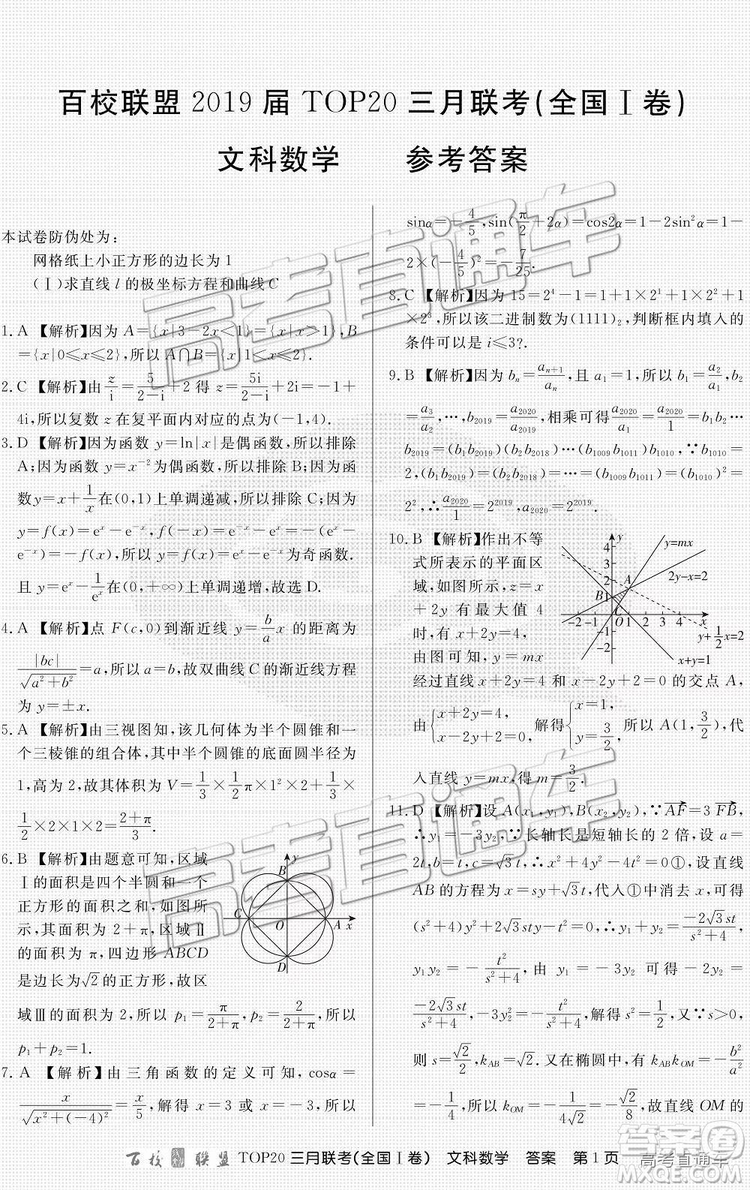 百校联盟 2019 届 TOP20 三月联考(全国Ⅰ卷)
文科数学 参考答案
本试卷防伪处为：
网格纸上小正方形的边长为 1
(Ⅰ)求直线 l 的极坐标方程和曲线 C
1. A 【解析】因为 A={x|3-2x<1}={x|x>1}, B
={x|0≤x≤2},所以 A∩B={x|1<x≤2}.
2. C 【解析】由 z/i = 5/(2-i) + 2 得 z = 5i/(2-i) + 2i = -1 +
4i,所以复数 z 在复平面内对应的点为(-1,4).
3. D 【解析】因为函数 y=ln|x|是偶函数,所以排除
A;因为函数 y=x⁻²为偶函数,所以排除 B;因为
函数 y=x+1/x 在(0,1)上单调递减,所以排除 C;因为
y=f(x)=eˣ-e⁻ˣ, f(-x)=e⁻ˣ-eˣ=
-(eˣ-e⁻ˣ)=-f(x),所以函数为奇函数.
且 y=eˣ-1/eˣ 在(0,+∞)上单调递增,故选 D.
4. A 【解析】点 F(c,0)到渐近线 y=b/a x 的距离为
|bc|/√(a²+b²)=a,所以 a=b,故双曲线 C 的渐近线方程
为 y=±x.
5. A 【解析】由三视图知,该几何体为半个圆锥和一
个三棱锥的组合体,其中半个圆锥的底面圆半径为
1,高为 2,故其体积为 V=1/3×1/2×π×2+1/3×
1/2×2×1×2=(2+π)/3.
6. B 【解析】由题意可知,区域
Ⅰ的面积是四个半圆和一个
正方形的面积之和减去一个圆
示,其面积为 2+π,区域Ⅱ
的面积为 π,四边形 ABCD
是边长为√2的正方形,所以区
域Ⅲ的面积为 2,所以 p₁=π/(2+π), p₂=2/(2+π),所以
p₁>p₂.
y
B
C
O
A
x
D
7. A 【解析】由三角函数的定义可知, cosα=
x/√(x²+(-4)²)=x/5,解得 x=3,所以 x=3,所以
sinα=-4/5, sin(π/2+2α)=cos2α=1-2sin²α=1-
2×(-4/5)²=-7/25.
8. C 【解析】因为 15=2⁴-1=1+1×2+1×2²+1
×2³,所以该二进制数为(1111)₂,判断框内填入的
条件可以是 i≤3?.
9. B 【解析】因为 bₙ=aₙ₊₁/aₙ,且 a₁=1,所以 b₁=a₂/a₁, b₂
=a₃/a₂,…, b₂₀₁₉=a₂₀₂₀/a₂₀₁₉,相乘可得=b₁b₂…
b₂₀₁₉=(b₁b₂₀₁₉)(b₂b₂₀₁₈)…(b₁₀₀₉b₁₀₁₁)b₁₀₁₀, ∵b₁₀₁₀=
2,∴b₁b₂…b₂₀₁₉=(b₁b₂₀₁₉)(b₂b₂₀₁₈)…(b₁₀₀₉b₁₀₁₁)b₁₀₁₀=
2²⁰¹⁹,∴a₂₀₂₀/1=2²⁰¹⁹, a₂₀₂₀=2²⁰¹⁹.
10. B 【解析】作出不等
式所表示的平面区
域,如图所示, x
+2y 有最大值 4
时,由图可知,
由图可知, y=mx
经过直线 x+2y=4 和 x-2y+2=0 的交点 A,
由{x+2y=4 x-2y=-2 解得{x=1 y=3/2,所以 A(1,3/2),代
入直线 y=mx,解得 m=3/2.
y
y=mx
2y-x=2
A
B
C
-2 O 1 2 3 4 x
y+1/2x=2
x+y=1
11. D 【解析】设 A(x₁,y₁),B(x₂,y₂),∵AF=3FB,
∴y₁=-3y₂,∵长轴长是短轴长的 2 倍,设 a=
2t,b=t,则 c=√3t,∴x²+4y²-4t²=0①,设直线
AB 的方程为 x=sy+√3t,代入①消去 x,可得
(s²+4)y²+2√3sty-t²=0,∴y₁+y₂=-2√3st/(s²+4),
y₁y₂=-t²/(s²+4),由 y₁=-3y₂ 可得 -2y₂=
-2√3st/(s²+4), -3y₂²=-t²/(s²+4),解得 s²=1/2,又∵s>0,
则 s=√2/2, k_AB=√2,又∵在椭圆中, k_OM·k_AB=-b²/a²
=-1/4,所以解得 k_OM=-1/(4√2)=-√2/8,故直线 OM 的
百校联盟 TOP20 三月联考(全国Ⅰ卷) 文科数学 答案 第 1 页
高考直通车
高考直通车
高考直通车
答案圈
高考直通车